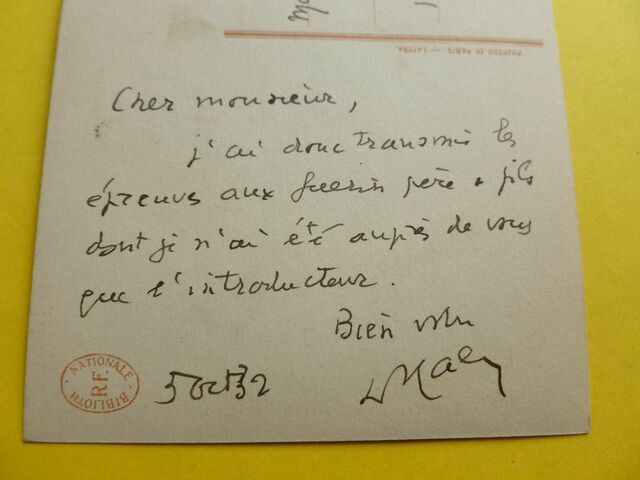 PRINTED IN PARIS — LAPINA.
Cher monsieur,
j'ai donc transmis les
épreuves aux Guérin père & fils
dont je n'ai été auprès de vous
que l'introducteur.
Bien votre
5 Oct 32
BIBLIOTH NATIONALE
R.F.